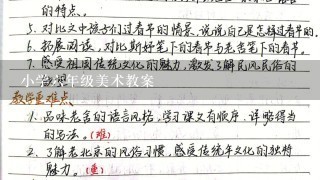 的特点。
5. 对比文中孩子们过春节的情景,说说自己是怎样过春节的。
6. 拓展阅读,对比斯妤笔下的春节与老舍笔下的春节。
7. 感受祖国传统文化的魅力,激发了解民风民俗的
小学 年级美术教案
教学重难点
1. 品味老舍的语言风格,学习课文有顺序、详略得当
的写法。(难)
2. 了解老北京的风俗习惯,感受传统年文化的独特
魅力。(重)